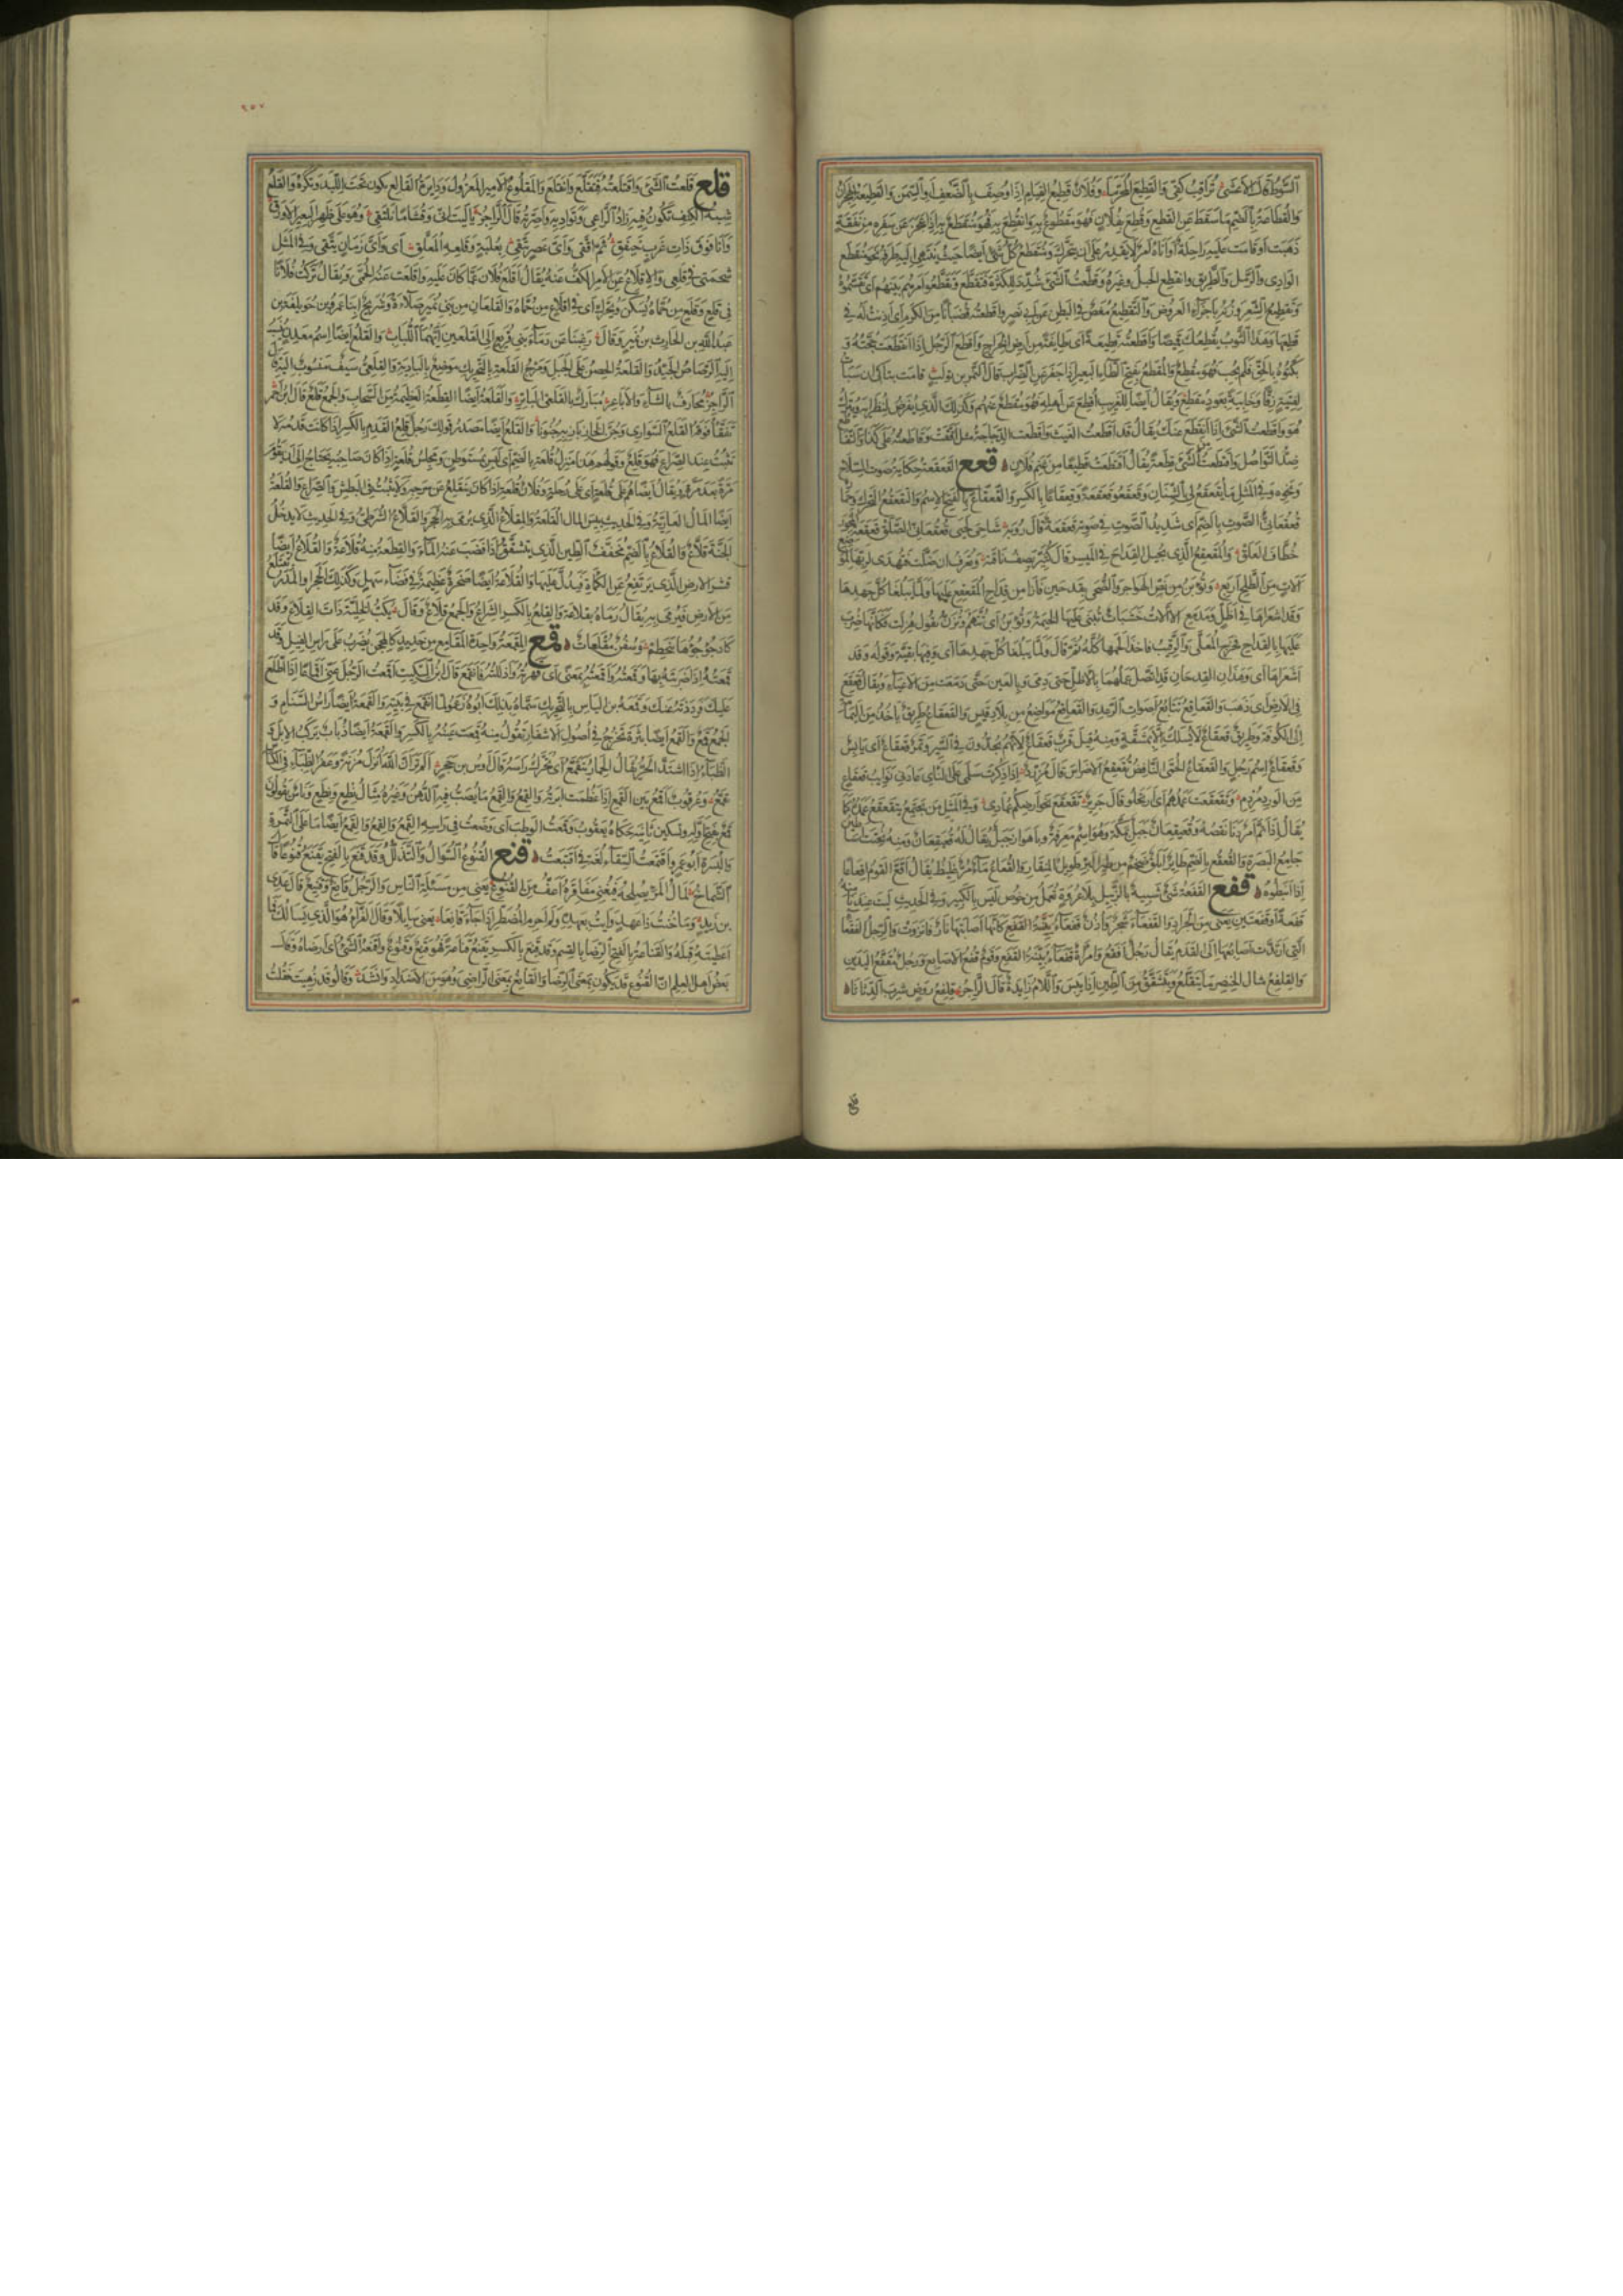 السوط قال الاعشى تراقب كفى والقطيع المحرما وفلان قطيع القيام اذا وصف بالضعف او السمن والقطيعة الهجران
والقطاعة بالضم ما سقط عن القطع وقطع بفلان فهو مقطوع به وانقطع به فهو منقطع به اذا عجز عن سفره من نفقة
ذهبت او قامت عليه راحلته او اتاه امر لا يقدر على ان يتحرك ومنقطع كل شئ ايضا حيث ينتهى اليه طرفه نحو منقطع
الوادى والرمل والطريق وانقطع الحبل وغيره وقطعت الشئ شدد للكثرة فتقطع وتقطعوا امرهم بينهم اى تقسموه
وتقطيع الشعر وزنه باجزاء العروض والتقطيع مغص فى البطن عن ابى نصر واقطعته قضبانا من الكرم اى اذنت له فى
قطعها وهذا الثوب يقطعك قميصا واقطعته قطيعة اى طائفة من ارض الخراج واقطع الرجل اذا انقطعت حجته و
بكتوه بالحق فلم يجب فهو مقطع والمقطع بفتح الطاء البعير اذا جفر عن الضراب قال النمر بن تولب قامت تباكى ان سبأت
لفتية زقا وخابية بعود مقطع ويقال ايضا للغريب اقطع عن اهله فهو مقطع عنهم وكذلك الذى يفرض لنظرائه ويترك
هو واقطعت الشئ اذا انقطع عنك يقال قد اقطعت الغيث واقطعت الدجاجة مثل اقفت وقاطعته على كذا والتقاطع
ضد التواصل واقتطعت من الشئ قطعة يقال اقتطعت قطيعا من غنم فلان قعع القعقعة حكاية صوت السلاح
ونحوه وفى المثل ما يقعقع لى بالشنان وقعقعه قعقعة وقعقاعا بالكسر والقعقاع بالفتح الاسم والتقعقع التحرك
قعقعانى الصوت بالضم اى شديد الصوت فى صوته قعقعة قال رؤبة شاحى لحيى قعقعانى الصلق قعقعة المحور
خطاف العلق والمقعقع الذى يجيل القداح فى الميسر قال كثير يصف ناقته وتعرف ان ضلت فتهدى لربها لموضع
الات من الطلح اربع وتؤبن من نص الهواجر والضحى بقدحين فازا من قداح المقعقع عليها ولما يبلغا كل جهدها
وقد اشعراها فى اظل ومدمع الالات خشبات تبنى عليها الخيمة وتؤبن اى تتهم وتزن يقول هزلت فكانها ضرب
عليها بالقداح فخرج المعلى والرقيب فاخذا لحمها كله ثم قال ولما يبلغا كل جهدها اى وفيها بقية وقوله وقد
اشعراها اى وهذان القدحان قد اتصل عملهما بالاظل حتى دمى وبالعين حتى دمعت من الاعياء ويقال قعقع
فى الارض اى ذهب والقعاقع تتابع اصوات الرعد والقعاقع مواضع من بلاد قيس والقعقاع طريق ياخذ من اليمامة
الى الكوفة وطريق قعقاع لا يسلك الا بمشقة ومنه قيل قرب قعقاع لانهم يجدون فى السير وتمر قعقاع اى يابس
وقعقاع اسم رجل والقعقاع الحمى النافض تقعقع الاضراس قال مزرد اذا ذكرت سلمى على الناى عادنى ثوايب قعقاع
من الورد مردم وتقعقعت عمدهم اى ارتحلوا قال جرير تقعقع نحو ارضكم عمادى وفى المثل من يجتمع يتقعقع عمده كما
يقال اذا تم امر دنا نقصه وقعيقعان جبل بمكة وهو اسم معرفة وبالاهواز جبل يقال له قعيقعان ومنه نحتت اساطين
جامع البصرة والقعقع بالضم طاير ابلق ضخم من طير البر طويل المنقار والقعاع ماء مر غليظ يقال اقع القوم اقعاعا
اذا انبطوه قفع القفعة شئ شبيه بالزبيل بلا عروة تعمل من خوص ليس بالكبير وفى الحديث ليت عندنا منه
قفعة او قفعتين يعنى من الجراد والقفعاء شجر واذن قفعاء بينة القفع كانها اصابتها نار فانزوت والرجل القفعاء
التى ارتدت اصابعها الى القدم يقال رجل اقفع وامراة قفعاء بينة القفع وقوم قفع الاصابع ورجل مقفع اليدين
والقلفع مثال الخنصر ما يتقلع ويتشقق من الطين اذا يبس واللام زايدة قال الراجز قلفع روض شرب الدثاثا
قلع
٢٥٧
قلع قلعت الشئ واقتلعته فتقلع وانقلع والمقلوع الامير المعزول ودايرة القالع تكون تحت اللبد وتكره والقلع
شبه الكنف تكون فيه زاد الراعى وتواديه واصرته قال الراجز يا ليت انى وقشاما نلتقى وهو على ظهر البعير الاورق
وانا فوق ذات غرب خيفق ثم اتقى واى عصر يتقى بعلبة وقلعه المعلق اى واى زمان يتقى وفى المثل
شحمتى فى قلعى والاقلاع عن الامر الكف عنه يقال اقلع فلان عما كان عليه واقلعت عنه الحمى ويقال تركت فلانا
فى قلع وقلع من حماه يسكن ويحرك اى فى اقلاع من حماه والقلعان من بنى نمير صلاءة وشريح ابنا عمرو بن خويلفة بن
عبد الله بن الحارث بن نمير وقال رغبنا عن دماء بنى قريع الى القلعين انهما اللباب والقلع ايضا اسم معدن ينسب
اليه الرصاص الجيد والقلعة الحصن على الجبل ومرج القلعة بالتحريك موضع بالبادية والقلعى سيف منسوب اليه قال
الراجز محارف بالشاء والاباعر مبارك بالقلعى الباتر والقلعة ايضا القطعة العظيمة من السحاب والجمع قلع قال ابن احمر
تفقأ فوقه القلع السوارى وجن الخازباز به جنونا والقلع ايضا مصدر قولك رجل قلع القدم بالكسر اذا كانت قدمه لا
تثبت عند الصراع فهو قلع وقولهم هذا منزل قلعة بالضم اى ليس بمستوطن ومجلس قلعة اذا كان صاحبه يحتاج الى ان يقوم
مرة بعد مرة ويقال ايضا هم على قلعة اى على رحلة وفلان قلعة اذا كان ينقلع عن سرجه ولا يثبت فى البطش والصراع والقلعة
ايضا المال العارية وفى الحديث بيس المال القلعة والمقلاع الذى يرمى به الحجر والقلاع الشرطى وفى الحديث لا يدخل
الجنة قلاع والقلاع بالضم مخفف الطين الذى يتشقق اذا نضب عنه الماء والقطعة منه قلاعة والقلاع ايضا
قشر الارض الذى يرتفع عن الكماة فيدل عليها والقلاعة ايضا صخرة عظيمة فى فضاء سهل وكذلك الحجر او المدر يقتلع
من الارض فيرمى به يقال رماه بقلاعة والقلع بالكسر الشراع والجمع قلاع وقال يكب الخلية ذات القلاع وقد
كاد جؤجؤها ينحطم وسفن مقلعات قمع المقمعة واحدة المقامع من حديد كالمحجن يضرب على راس الفيل وقد
قمعته اذا ضربته بها وقمعته واقمعته بمعنى اى قهرته واذللته فانقمع قال ابن السكيت اقمعت الرجل عنى اقماعا اذا اطلع
عليك ورددته عنك وقمعة بن الياس بالتحريك سماه بذلك ابوه زعموا لما انقمع فى بيته والقمعة ايضا راس السنام و
الجمع قمع والقمع ايضا بثرة تخرج فى اصول الاشفار تقول منه قمعت عينه بالكسر والقمعة ايضا ذباب يركب الابل و
الظباء اذا اشتد الحر يقال الحمار يتقمع اى يحرك راسه قال اوس بن حجر الم تر ان الله انزل مزنة وعفر الظباء فى الكناس
تقمع وعرقوب اقمع بين القمع اذا عظمت ابرته والقمع والقمع ما يصب فيه الدهن وغيره مثال نطع ونطع وناس يقولون
قمع بفتح اوله وتسكين ثانيه حكاه يعقوب وقمعت الوطب اى وضعت فى راسه القمع والقمع والقمع ايضا ما على التمرة
والبسرة ابو عمرو اقتمعت السقاء لغة فى اقتبعت قنع القنوع السوال والتذلل وقد قنع بالفتح يقنع قنوعا قال
الشماخ لمال المرء يصلحه فيغنى مفاقره اعف من القنوع يعنى من مسئلة الناس والرجل قانع وقنيع قال عدى
بن زيد وما خنت ذا عهد وابت بعهده ولم احرم المضطر اذ جاء قانعا يعنى سايلا وقال الفراء هو الذى يسالك فما
اعطيته قبله والقناعة بالفتح الرضا بالقسم وقد قنع بالكسر يقنع قناعة فهو قنع وقنوع واقنعه الشئ اى ارضاه وقال
بعض اهل العلم ان القنوع قد يكون بمعنى الرضا والقانع بمعنى الراضى وهو من الاضداد وانشد وقالوا قد زهيت فقلت